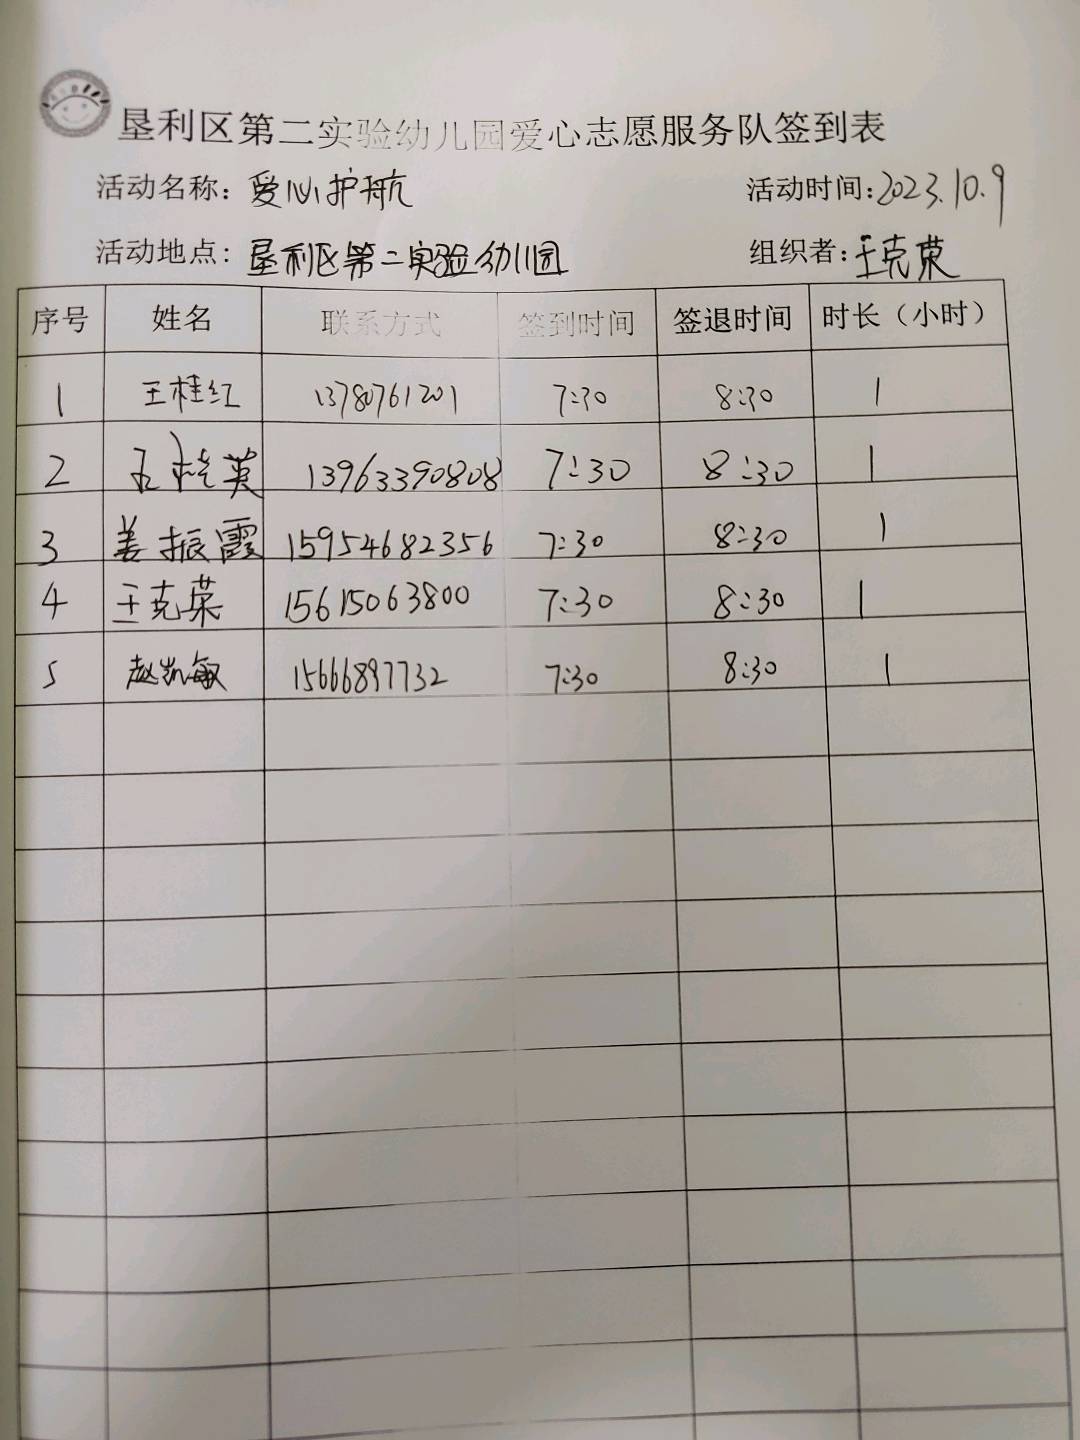 垦利区第二实验幼儿园爱心志愿服务队签到表
活动名称：爱心护航 活动时间：2023.10.9
活动地点：垦利区第二实验幼儿园 组织者：王克荣
序号 姓名 联系方式 签到时间 签退时间 时长（小时）
1 王桂红 13780761201 7:30 8:30 1
2 桂英 13963390808 7:30 8:30 1
3 姜振霞 15954682356 7:30 8:30 1
4 王克荣 15615063800 7:30 8:30 1
5 赵凯敏 15666897732 7:30 8:30 1